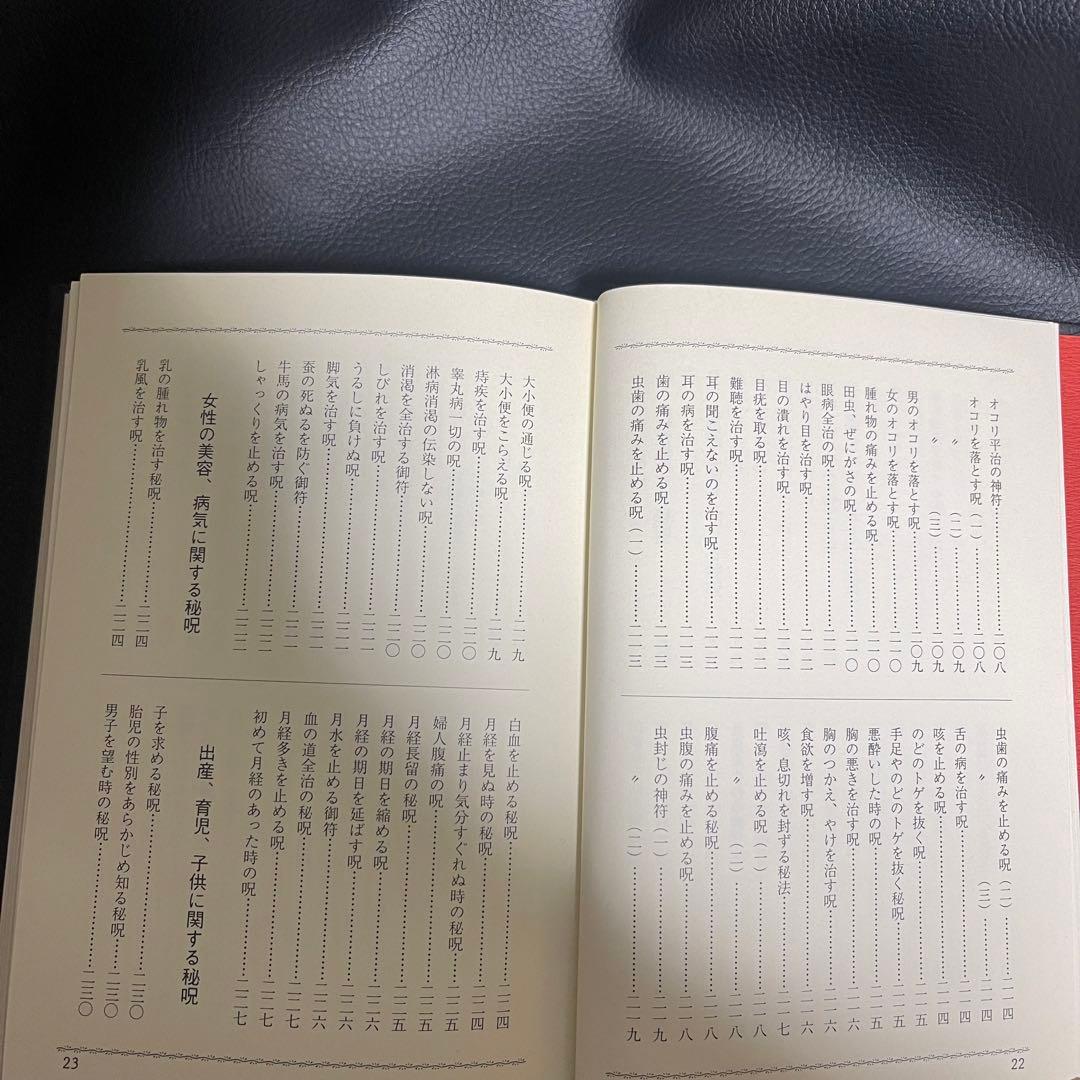 オコリ平治の神符…………二〇八
オコリを落とす呪（一）……二〇八
〃（二）……二〇九
〃（三）……二〇九
男のオコリを落とす呪……二〇九
女のオコリを落とす呪……二一〇
腫れ物の痛みを止める呪……二一〇
田虫、ぜにがさの呪……二一〇
眼病全治の呪……二一一
はやり目を治す呪……二一二
目の潰れを治す呪……二一二
目疣を取る呪……二一二
難聴を治す呪……二一二
耳の聞こえないのを治す呪……二一三
耳の病を治す呪……二一三
歯の痛みを止める呪……二一三
虫歯の痛みを止める呪（一）……二一三
虫歯の痛みを止める呪（二）……二一四
〃（三）……二一四
舌の病を治す呪……二一四
咳を止める呪……二一四
のどのトゲを抜く呪……二一四
手足やのどのトゲを抜く秘呪……二一五
悪酔いした時の呪……二一五
胸の悪きを治す呪……二一六
胸のつかえ、やけを治す呪……二一六
食欲を増す呪……二一六
咳、息切れを封ずる秘法……二一七
吐瀉を止める呪（一）……二一八
〃（二）……二一八
腹痛を止める秘呪……二一八
虫腹の痛みを止める呪……二一八
虫封じの神符（一）……二一九
〃（二）……二一九
22
大小便の通じる呪……二一九
大小便をこらえる呪……二一九
痔疾を治す呪……二二〇
睾丸病一切の呪……二二〇
淋病消渇の伝染しない呪……二二〇
消渇を全治する御符……二二〇
しびれを治す呪……二二一
うるしに負けぬ呪……二二一
脚気を治す呪……二二一
蚕の死ぬるを防ぐ御符……二二一
牛馬の病気を治す呪……二二二
しゃっくりを止める呪……二二二
女性の美容、病気に関する秘呪
乳の腫れ物を治す秘呪……二二四
乳風を治す呪……二二四
白血を止める秘呪……二二四
月経を見ぬ時の秘呪……二二四
月経止まり気分すぐれぬ時の秘呪……二二五
婦人腹痛の呪……二二五
月経長留の秘呪……二二五
月経の期日を縮める呪……二二五
月経の期日を延ばす呪……二二六
月水を止める御符……二二六
血の道全治の秘呪……二二六
月経多きを止める呪……二二七
初めて月経のあった時の呪……二二七
出産、育児、子供に関する秘呪
子を求める秘呪……二三〇
胎児の性別をあらかじめ知る秘呪……二三〇
男子を望む時の秘呪……二三〇
23